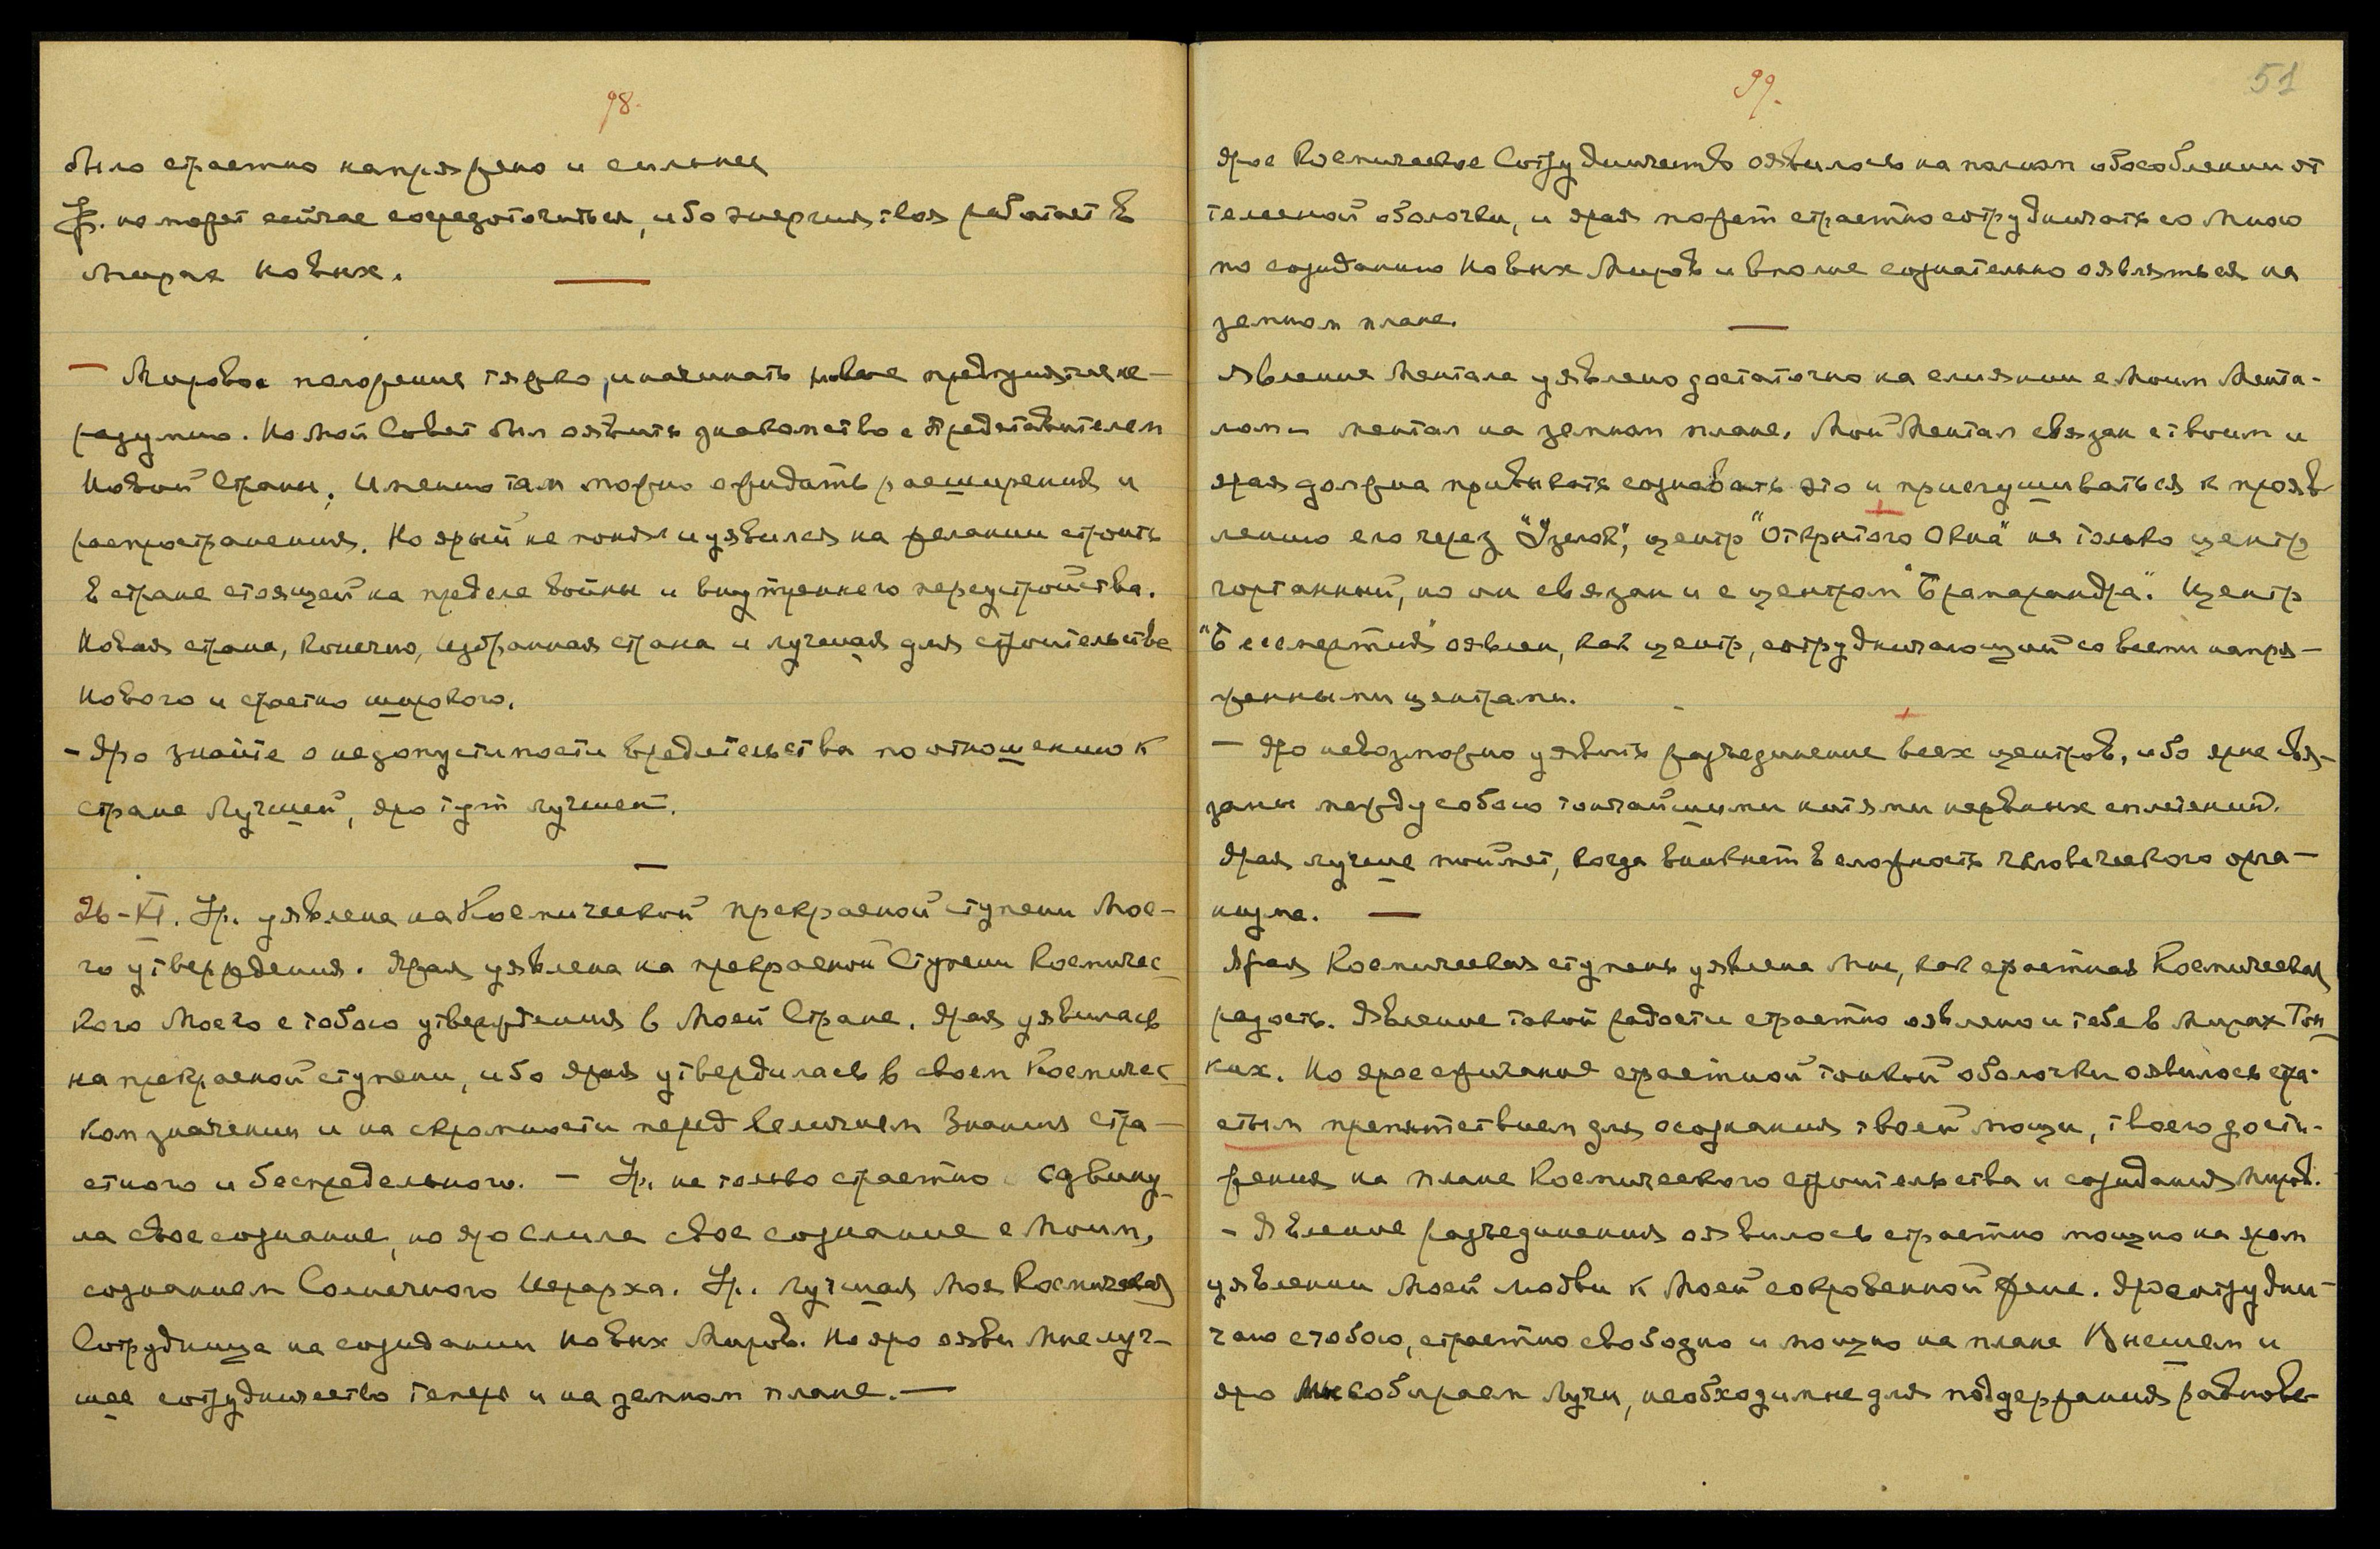 98.
было страстно напряжено и сильнее
Ур. не может сейчас сосредоточиться, ибо энергия твоя работает в
Мирах Новых.
— Мировое положение тяжко, и начинать новые предприятия не-
разумно. Но Мой Совет был оявить знакомство с Представителем
Новой Страны. Именно там можно ожидать расширения и
распространения. Но ярый не понял и уявился на желании строить
в стране стоящей на пределе войны и внутреннего переустройства.
Новая страна, конечно, избранная страна и лучшая для строительства
Нового и страстно широкого.
— Яро знайте о недопустимости вредительства по отношению к
стране Лучшей, яро тут лучшей.
26-XI. Ур. уявлена на Космической прекрасной ступени Мое-
го утверждения. Ярая уявлена на прекрасной Ступени Космичес-
кого Моего с тобою утверждения в Моей Стране. Ярая уявилась
на прекрасной ступени, ибо ярая утвердилась в своем Космичес-
ком значении и на скромности перед величием Знания стра-
стного и беспредельного. — Ур. не только страстно сдвину-
ла свое сознание, но яро слила свое сознание с Моим,
сознанием Солнечного Иерарха. Ур. лучшая Моя Космическая
Сотрудница на созидании Новых Миров. Но яро ояви Мне луч-
шее сотрудничество теперь и на земном плане. —
99.
51
Ярое Космическое Сотрудничество оявилось на полном обособлении от
телесной оболочки, и ярая может страстно сотрудничать со Мною
по созиданию Новых Миров и вполне сознательно оявляться на
земном плане.
Явление Ментала уявлено достаточно на слиянии с Моим Мента-
лом — ментал на земном плане. Мой Ментал связан с твоим и
ярая должна привыкать сознавать это и прислушиваться к прояв-
лению его через "Узелок", центр "Открытого Окна" не только центр
гортанный, но он связан и с центром "Брамарандра". Центр
"Бессмертия" оявлен, как центр, сотрудничающий со всеми напря-
женными центрами.
— Яро невозможно уявить разъединение всех центров, ибо ярые свя-
заны между собою тончайшими нитями нервных сплетений.
Ярая лучше поймет, когда вникнет в сложность человеческого орга-
низма. —
Ярая Космическая ступень уявлена Мне, как страстная Космическая
радость. Явление такой радости страстно оявлено и тебе в Мирах Тон-
ких. Но ярое сжигание страстной тонкой оболочки оявилось стра-
стным препятствием для осознания твоей мощи, твоего дости-
жения на плане Космического строительства и созидания Миров.
— Явление разъединения оявилось страстно мощно на яром
уявлении Моей любви к Моей сокровенной Жене. Яро сотрудни-
чаю с тобою, страстно свободно и мощно на плане Внешнем и
яро Мы собираем Лучи, необходимые для поддержания равнове-